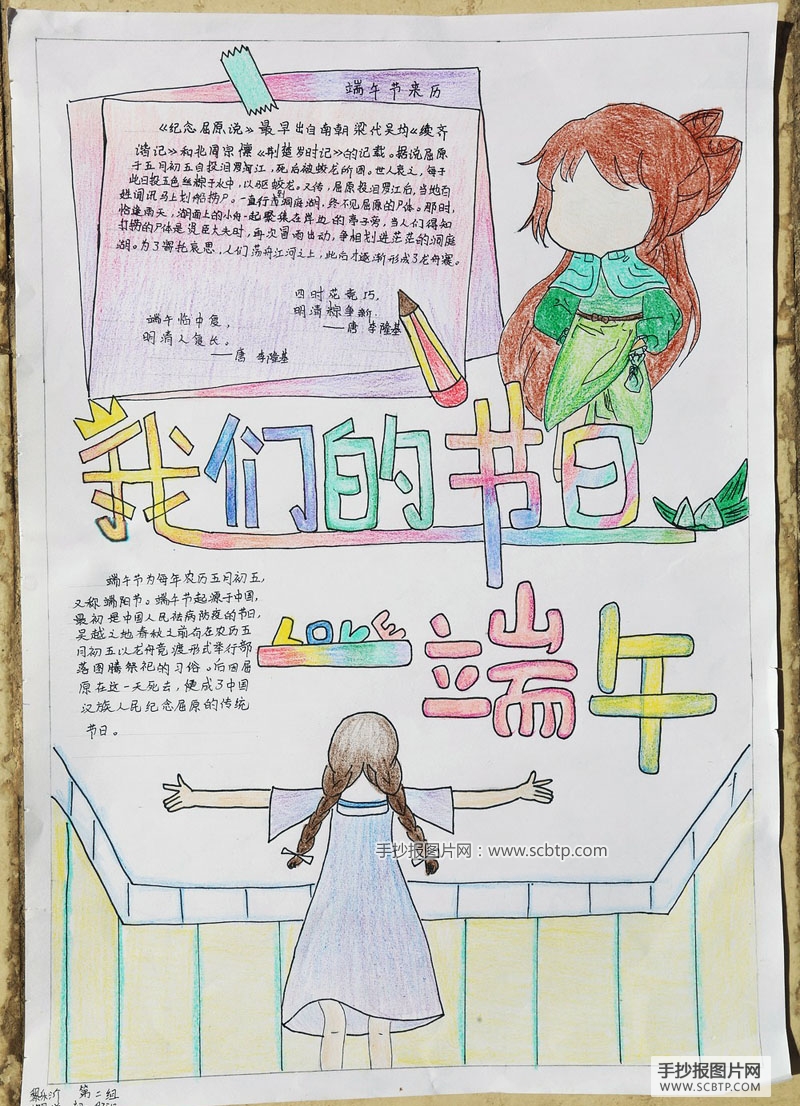 端午节来历
《纪念屈原说》最早出自南朝梁代吴均《续齐
谐记》和北周宗懔《荆楚岁时记》的记载。据说屈原
于五月初五自投汨罗江，死后被蛟龙所困。世人哀之，每于
此日投五色丝粽于水中，以驱蛟龙。又传，屈原投汨罗江后，当地百
姓闻讯马上划船捞尸。一直行到洞庭湖，终不见屈原的尸体。那时，
恰逢雨天，湖面上的小舟一起聚集在岸边的亭子旁，当人们得知
打捞的尸体是贤臣大夫时，再次冒雨出动，争相划进茫茫的洞庭
湖。为了寄托哀思，人们荡舟江河之上，此后才逐渐形成了龙舟赛。
四时花竞巧，
明清粽争新
——唐 李隆基
端午临中夏，
明清人复长。
——唐 李隆基
我们的节日
端午节为每年农历五月初五，
又称端阳节。端午节起源于中国，
最初是中国人民祛病防疫的节日，
吴越之地春秋之前有在农历五
月初五以龙舟竞渡形式举行部
落图腾祭祀的习俗。后因屈
原在这一天死去，便成了中国
汉族人民纪念屈原的传统
节日。
LOVE
端午
手抄报图片网：www.scbtp.com
第二组
手抄报图片网
WWW.SCBTP.COM